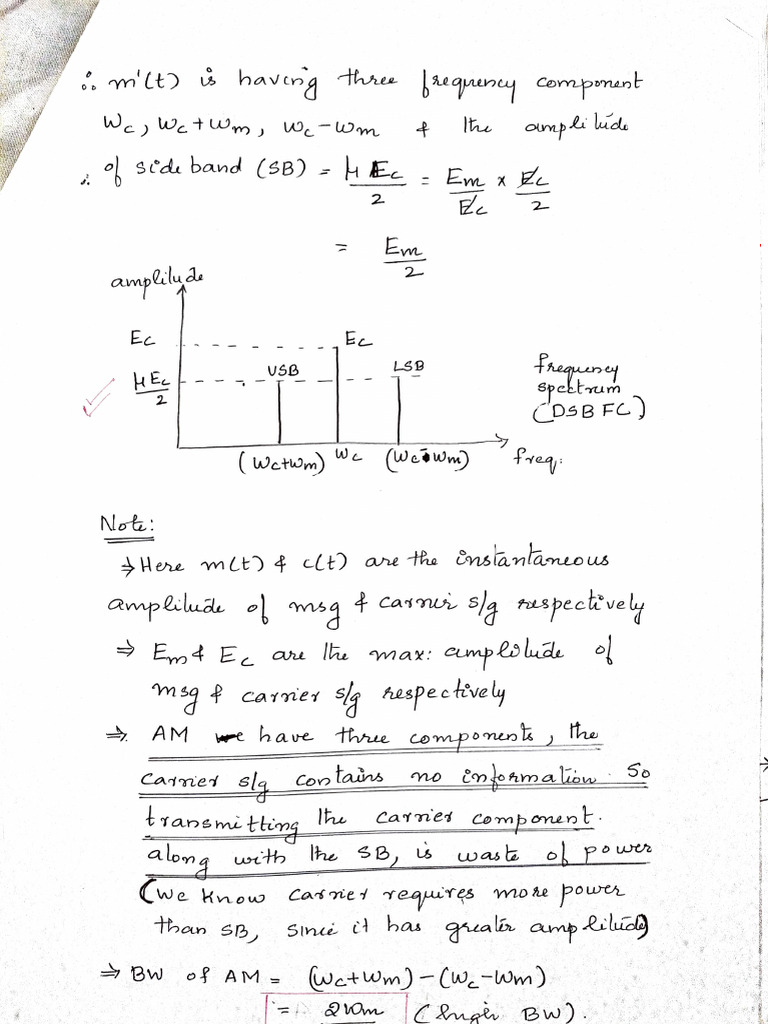 ∴ m'(t) is having three frequency component
Wc, Wc+Wm, Wc-Wm & the amplitude
∴ of side band (SB) = μEc/2 = Em/Ec × Ec/2
= Em/2
amplitude
Ec
Ec
μEc/2
USB
LSB
frequency
spectrum
(DSB FC)
(Wc+Wm)
Wc
(Wc-Wm)
freq:
Note:
⇒ Here m(t) & c(t) are the instantaneous
amplitude of msg & carrier s/g respectively
⇒ Em & Ec are the max: amplitude of
msg & carrier s/g respectively
⇒ AM we have three components, the
carrier s/g contains no information. So
transmitting the carrier component.
along with the SB, is waste of power
(We know carrier requires more power
than SB, since it has greater amplitude)
⇒ BW of AM = (Wc+Wm)-(Wc-Wm)
= 2Wm ( BW).